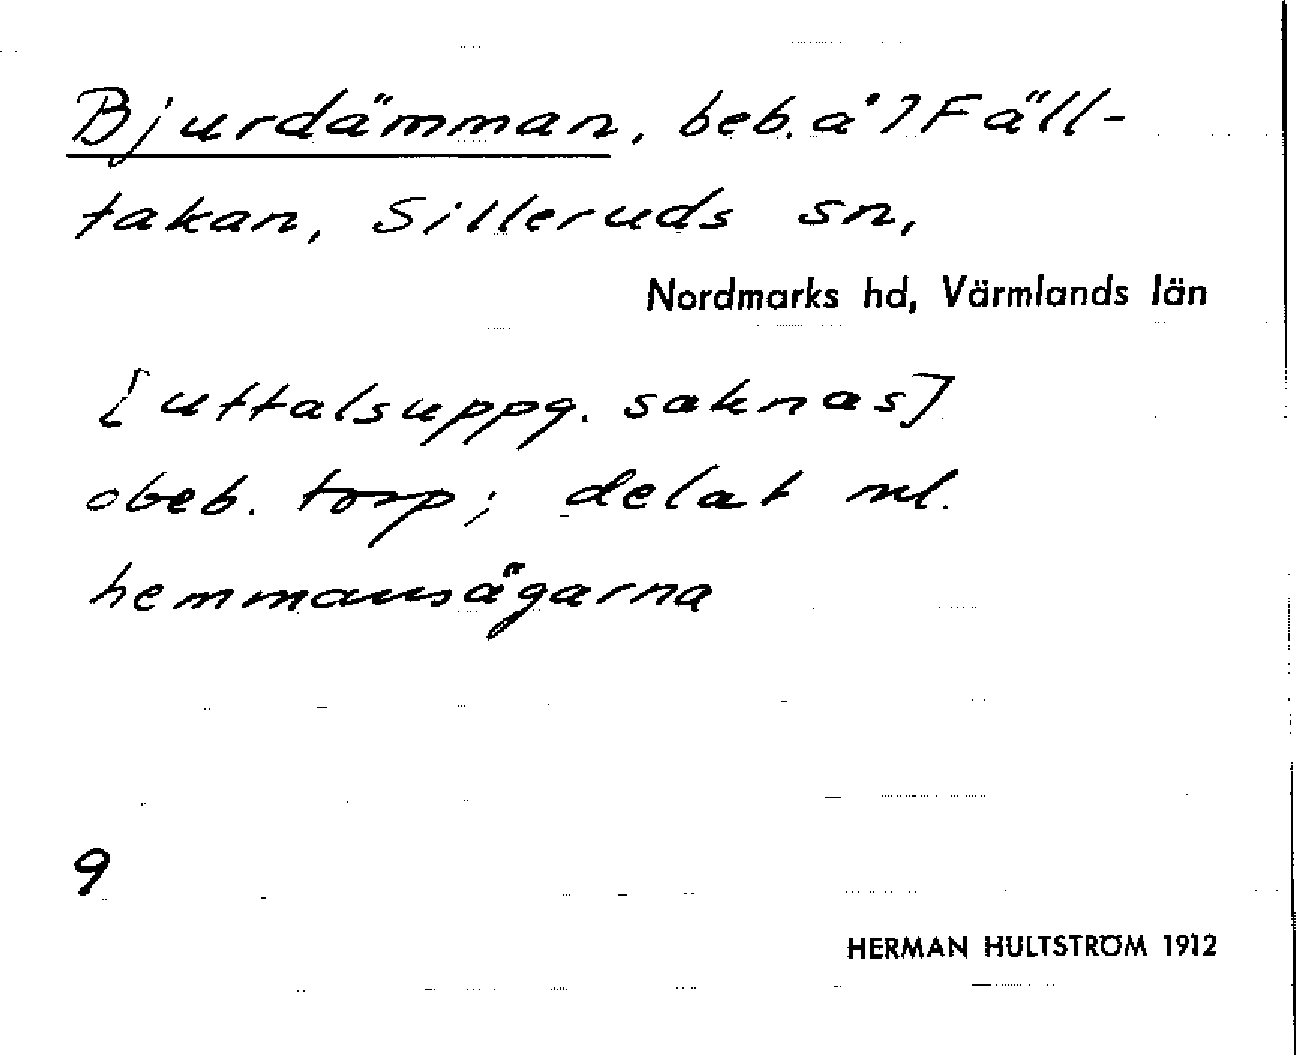 Bjurdämman, beb. å 7 Fäll-
takan, Silleruds sn,
Nordmarks hd, Värmlands län
[uttalsuppg. saknas]
obeb. torp; delat ml.
hemmansägarna
9
HERMAN HULTSTRÖM 1912